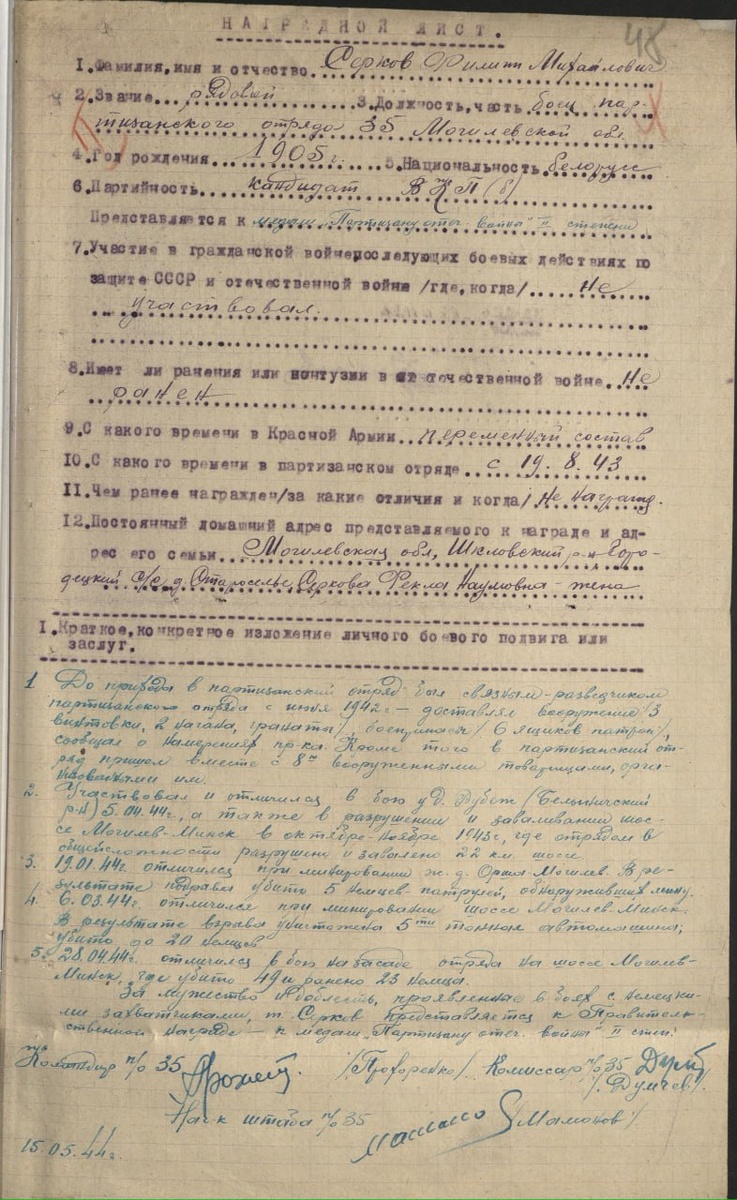 48
НАГРАДНОЙ ЛИСТ.
1.Фамилия,имя и отчество Серков Филипп Михайлович
2.Звание рядовой 3.Должность,часть боец пар-
тизанского отряда 35 Могилевской обл.
4.Год рождения 1905г. 5.Национальность белорусс
6.Партийность кандидат ВКП(б)
Представляется к медали "Партизану отеч. войны" II степени
7.Участие в гражданской войнепоследующих боевых действиях по
защите СССР и отечественной войне /где,когда/ не
участвовал.
8.Имеет ли ранения или контузии в отечественной войне не
ранен
9.С какого времени в Красной Армии переменный состав
10.С какого времени в партизанском отряде с 19.8.43
11.Чем ранее награжден/за какие отличия и когда/ не награжд.
12.Постоянный домашний адрес представляемого к награде и ад-
рес его семьи Могилевская обл, Шкловский р-н Горо-
децкий с/с, д. Староселье, Серкова Фекла Наумовна - жена
I.Краткое,конкретное изложение личного боевого подвига или
заслуг.
1 До прихода в партизанский отряд был связным-разведчиком
партизанского отряда с июня 1942г - доставлял вооружение /3
винтовки, 2 нагана, гранаты/, боеприпасы /6 ящиков патрон/,
сообщал о намерениях пр-ка. Кроме того в партизанский от-
ряд пришел вместе с 8ю вооруженными товарищами, орга-
низованными им.
2. Участвовал и отличился в бою у д. Дубеж (Белыничский
р-н) 5.04.44г., а также в разрушении и заваливании шос-
се Могилев-Минск в октябре-ноябре 1943г, где отрядом в
общей сложности разрушено и завалено 22 км. шоссе.
3. 19.01.44г. отличился при минировании ж.д. Орша-Могилев. В ре-
зультате подрыва убиты 5 немцев-патрулей, обнаруживших мину.
4. 6.03.44г. отличился при минировании шоссе Могилев-Минск.
В результате взрыва уничтожена 5ти тонная автомашина;
убито до 20 немцев
5. 28.04.44г. отличился в бою на засаде отряда на шоссе Могилев-
Минск, где убито 49 и ранено 23 немца.
За мужество и доблесть, проявленные в боях с немецки-
ми захватчиками, т. Серков представляется к Правитель-
ственной награде - к медали "Партизану отеч. войны" II степ.
Командир п/о 35 /Прохоренко/ Комиссар п/о 35
/Думчев/.
Нач-к штаба п/о 35 /Мамонов/
15.05.44г.